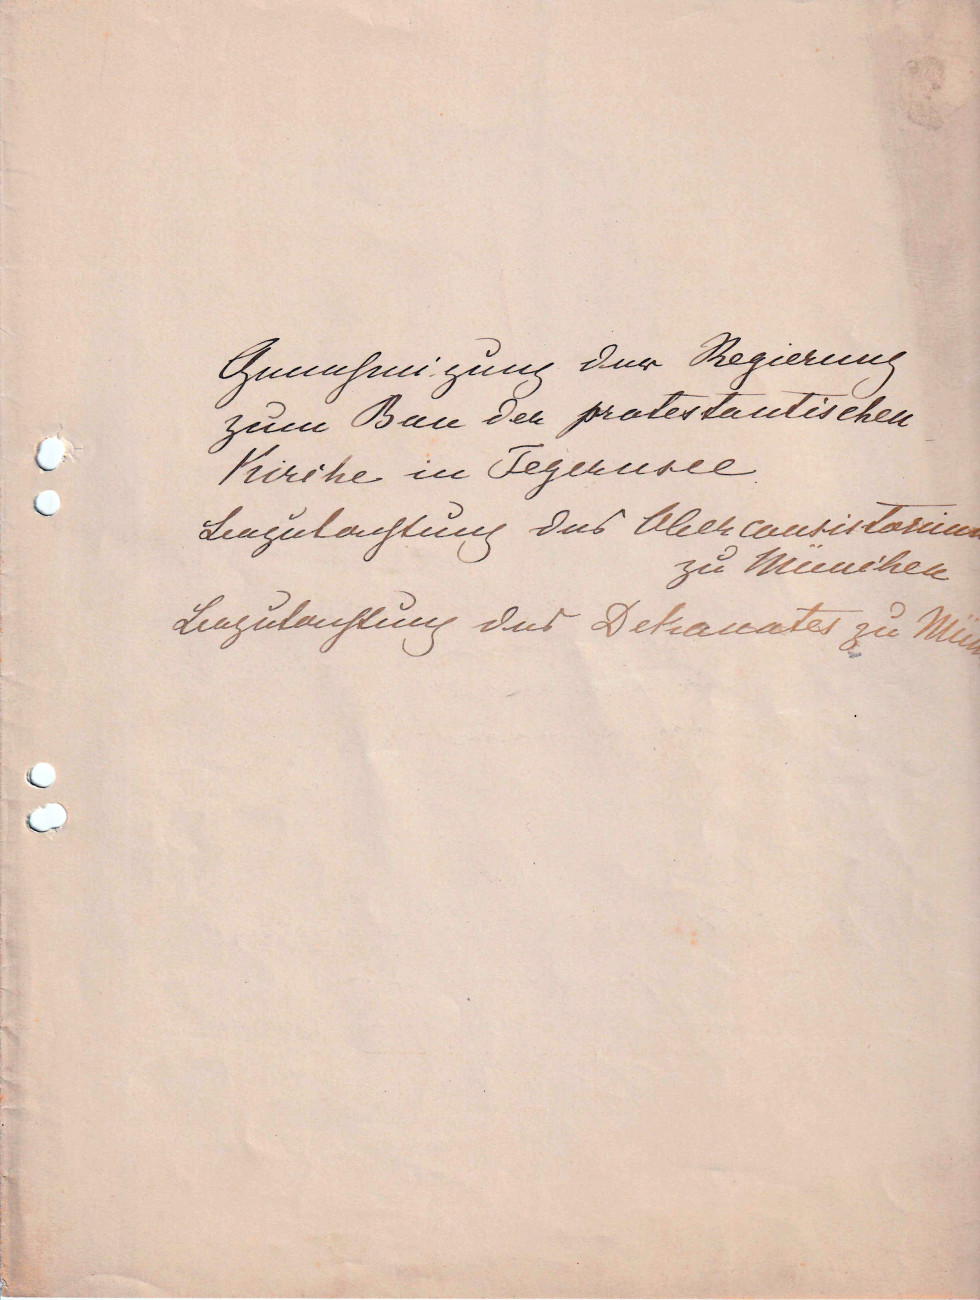 Genehmigung der Regierung
zum Bau der protestantischen
Kirche in Tegernsee.
Begutachtung des Oberconsistorium
zu München
Begutachtung des Dekanates zu Mün